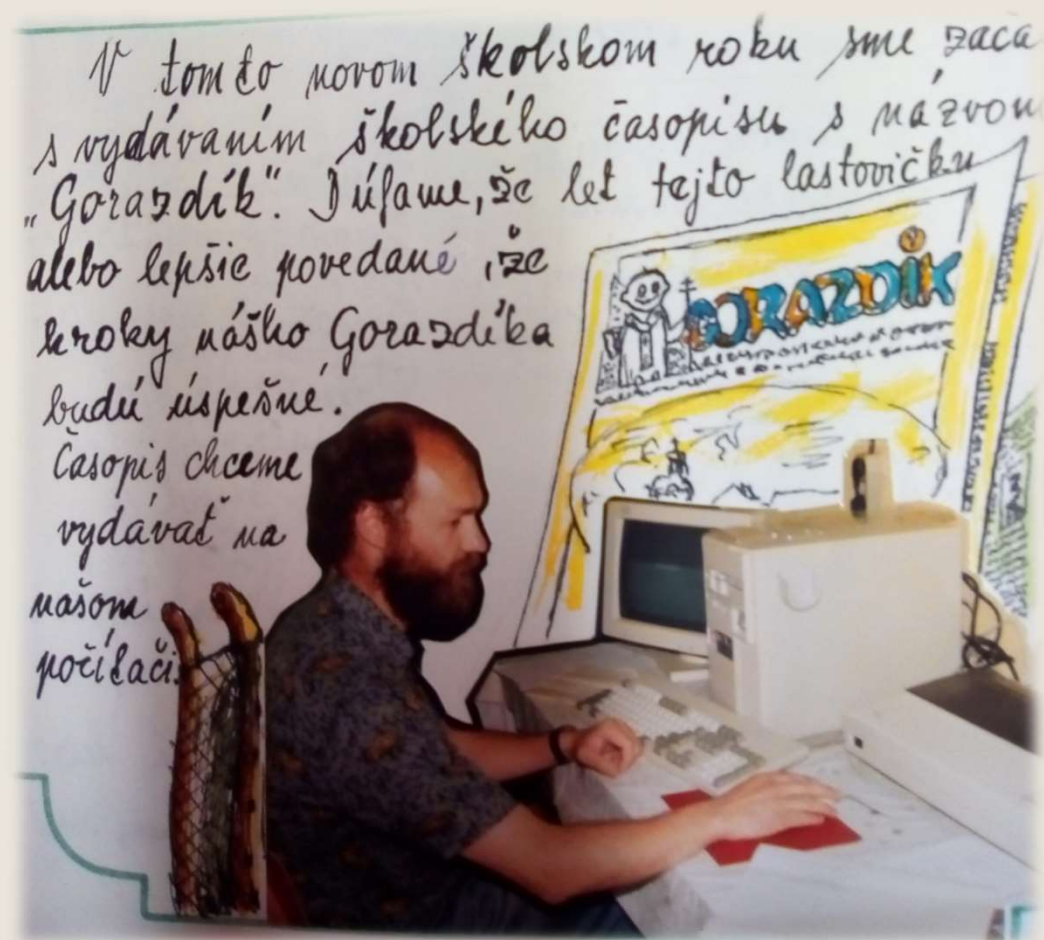 V tomto novom školskom roku sme zača
s vydávaním školského časopisu s názvom
„Gorazdík“. Dúfame, že let tejto lastovičky
alebo lepšie povedané, že
kroky nášho Gorazdíka
budú úspešné.
Časopis chceme
vydávať na
našom
počítači.
GORAZDIK